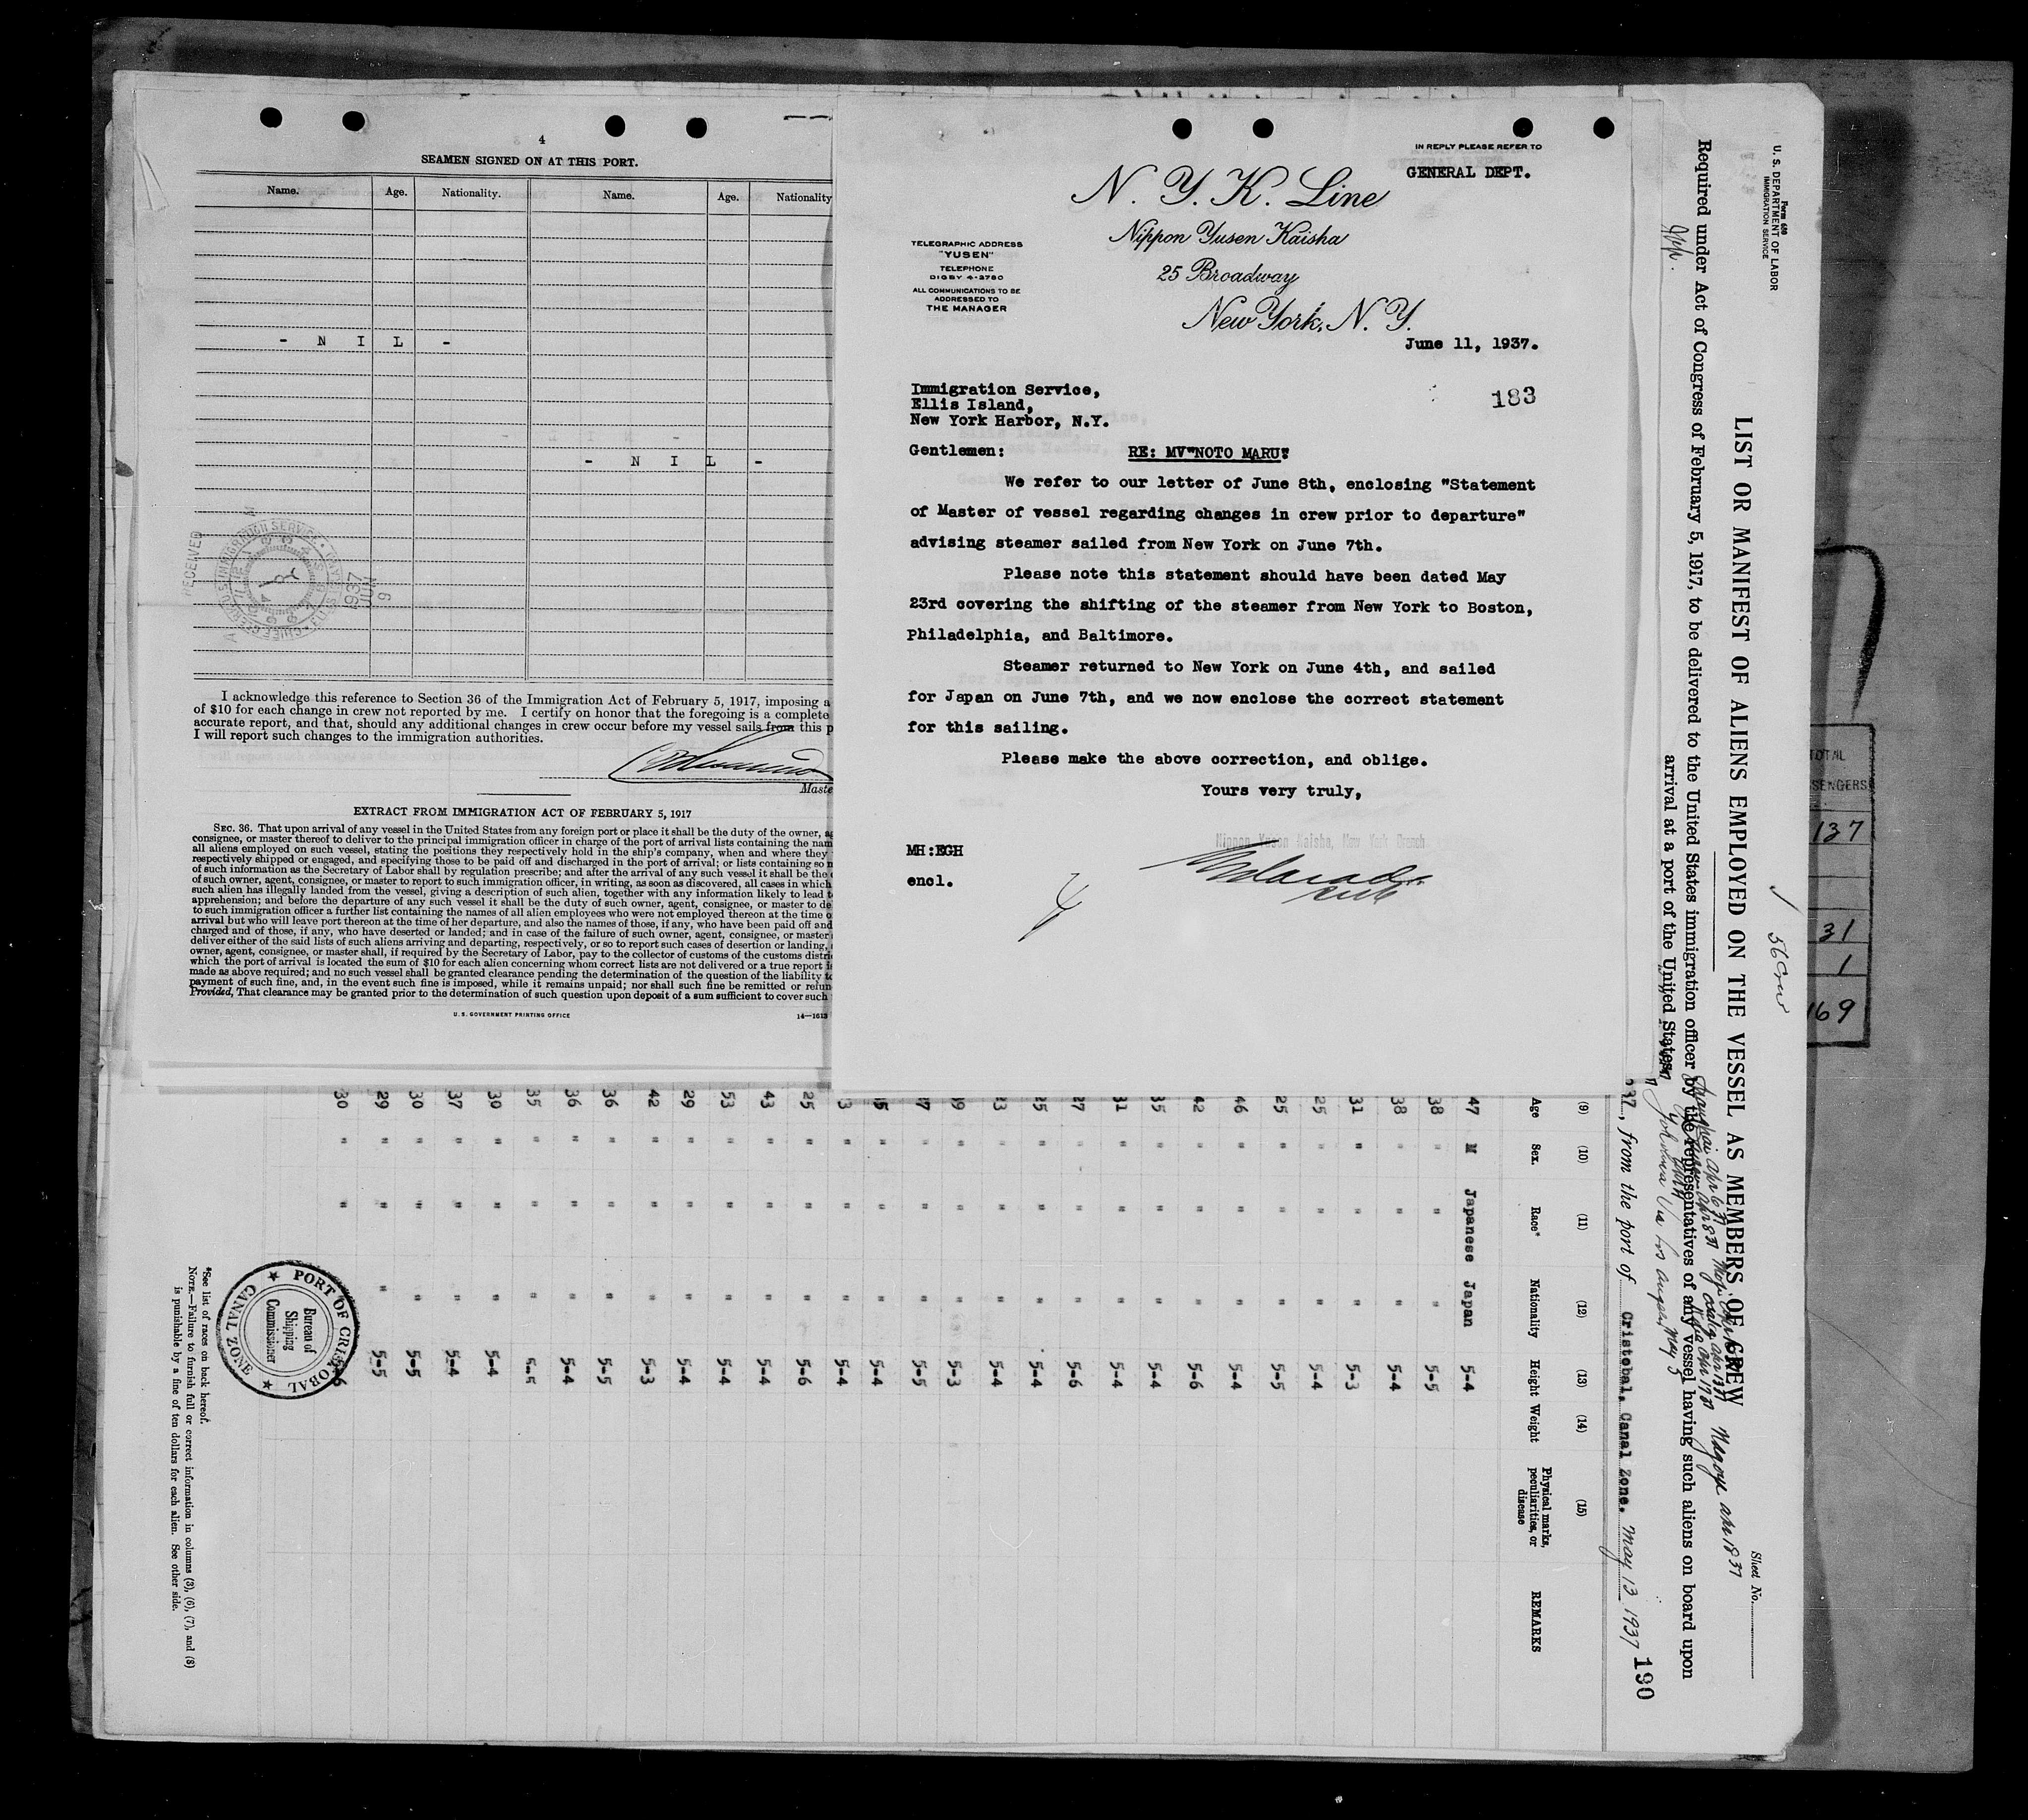 4
SEAMEN SIGNED ON AT THIS PORT.
Name. Age. Nationality. Name. Age. Nationality
- N I L -
- N I L -
RECEIVED
JUN 9 1937
I acknowledge this reference to Section 36 of the Immigration Act of February 5, 1917, imposing a
of $10 for each change in crew not reported by me. I certify on honor that the foregoing is a complete
accurate report, and that, should any additional changes in crew occur before my vessel sails from this p
I will report such changes to the immigration authorities.
Maste
EXTRACT FROM IMMIGRATION ACT OF FEBRUARY 5, 1917
SEC. 36. That upon arrival of any vessel in the United States from any foreign port or place it shall be the duty of the owner, ag
consignee, or master thereof to deliver to the principal immigration officer in charge of the port of arrival lists containing the nam
all aliens employed on such vessel, stating the positions they respectively hold in the ship's company, when and where they
respectively shipped or engaged, and specifying those to be paid off and discharged in the port of arrival; or lists containing so m
of such information as the Secretary of Labor shall by regulation prescribe; and after the arrival of any such vessel it shall be the
of such owner, agent, consignee, or master to report to such immigration officer, in writing, as soon as discovered, all cases in which
such alien has illegally landed from the vessel, giving a description of such alien, together with any information likely to lead t
apprehension; and before the departure of any such vessel it shall be the duty of such owner, agent, consignee, or master to de
to such immigration officer a further list containing the names of all alien employees who were not employed thereon at the time o
arrival but who will leave port thereon at the time of her departure, and also the names of those, if any, who have been paid off and
charged and of those, if any, who have deserted or landed; and in case of the failure of such owner, agent, consignee, or master
deliver either of the said lists of such aliens arriving and departing, respectively, or so to report such cases of desertion or landing,
owner, agent, consignee, or master shall, if required by the Secretary of Labor, pay to the collector of customs of the customs distri
which the port of arrival is located the sum of $10 for each alien concerning whom correct lists are not delivered or a true report i
made as above required; and no such vessel shall be granted clearance pending the determination of the question of the liability to
payment of such fine, and, in the event such fine is imposed, while it remains unpaid; nor shall such fine be remitted or refun
Provided, That clearance may be granted prior to the determination of such question upon deposit of a sum sufficient to cover such
U. S. GOVERNMENT PRINTING OFFICE 14—1613
IN REPLY PLEASE REFER TO
GENERAL DEPT.
N. Y. K. Line
Nippon Yusen Kaisha
25 Broadway
New York, N. Y.
TELEGRAPHIC ADDRESS
"YUSEN"
TELEPHONE
DIGBY 4-2780
ALL COMMUNICATIONS TO BE
ADDRESSED TO
THE MANAGER
June 11, 1937.
183
Immigration Service,
Ellis Island,
New York Harbor, N.Y.
Gentlemen: RE: MV"NOTO MARU"
We refer to our letter of June 8th, enclosing "Statement
of Master of vessel regarding changes in crew prior to departure"
advising steamer sailed from New York on June 7th.
Please note this statement should have been dated May
23rd covering the shifting of the steamer from New York to Boston,
Philadelphia, and Baltimore.
Steamer returned to New York on June 4th, and sailed
for Japan on June 7th, and we now enclose the correct statement
for this sailing.
Please make the above correction, and oblige.
Yours very truly,
Nippon Yusen Kaisha, New York Branch
MH:EGH
encl.
Form 680
U. S. DEPARTMENT OF LABOR
IMMIGRATION SERVICE
Sheet No.
LIST OR MANIFEST OF ALIENS EMPLOYED ON THE VESSEL AS MEMBERS OF CREW
Required under Act of Congress of February 5, 1917, to be delivered to the United States immigration officer by the representatives of any vessel having such aliens on board upon
arrival at a port of the United States
, from the port of Cristobal, Canal Zone. May 13 1937
190
(9) (10) (11) (12) (13) (14) (15)
Age Sex. Race* Nationality Height Weight Physical marks, peculiarities, or disease REMARKS
47 M Japanese Japan 5-4
38 " " " 5-5
38 " " " 5-4
31 " " " 5-3
25 " " " 5-4
25 " " " 5-5
46 " " " 5-4
42 " " " 5-6
35 " " " 5-4
31 " " " 5-4
27 " " " 5-6
25 " " " 5-4
" " " 5-4
" " " 5-3
" " " 5-5
" " " 5-4
" " " 5-4
25 " " " 5-6
43 " " " 5-4
53 " " " 5-4
29 " " " 5-4
42 " " " 5-3
36 " " " 5-5
36 " " " 5-4
35 " " " 5-5
30 " " " 5-4
37 " " " 5-4
30 " " " 5-5
29 " " " 5-5
30 " "
PORT OF CRISTOBAL
CANAL ZONE
Bureau of
Shipping
Commissioner
*See list of races on back hereof.
NOTE.—Failure to furnish full or correct information in columns (3), (6), (7), and (8)
is punishable by a fine of ten dollars for each alien. See other side.
TOTAL
SENGERS
137
31
1
169